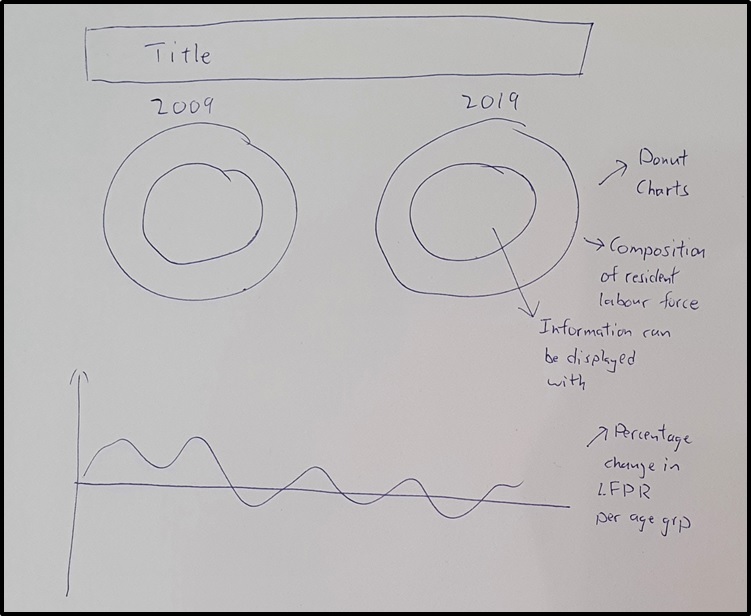 Title
2009
2019
Donut
Charts
Composition
of resident
labour force
Information can
be displayed
with
Percentage
change in
LFPR
per age grp